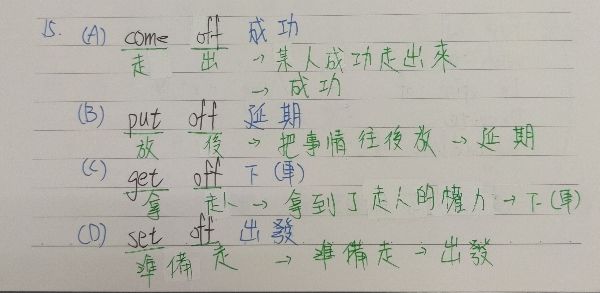 15. (A) come off 成功
走 出 → 某人成功走出來
→ 成功
(B) put off 延期
放 後 → 把事情往後放 → 延期
(C) get off 下(車)
拿 走人 → 拿到了走人的權力 → 下(車)
(D) set off 出發
準備 走 → 準備走 → 出發